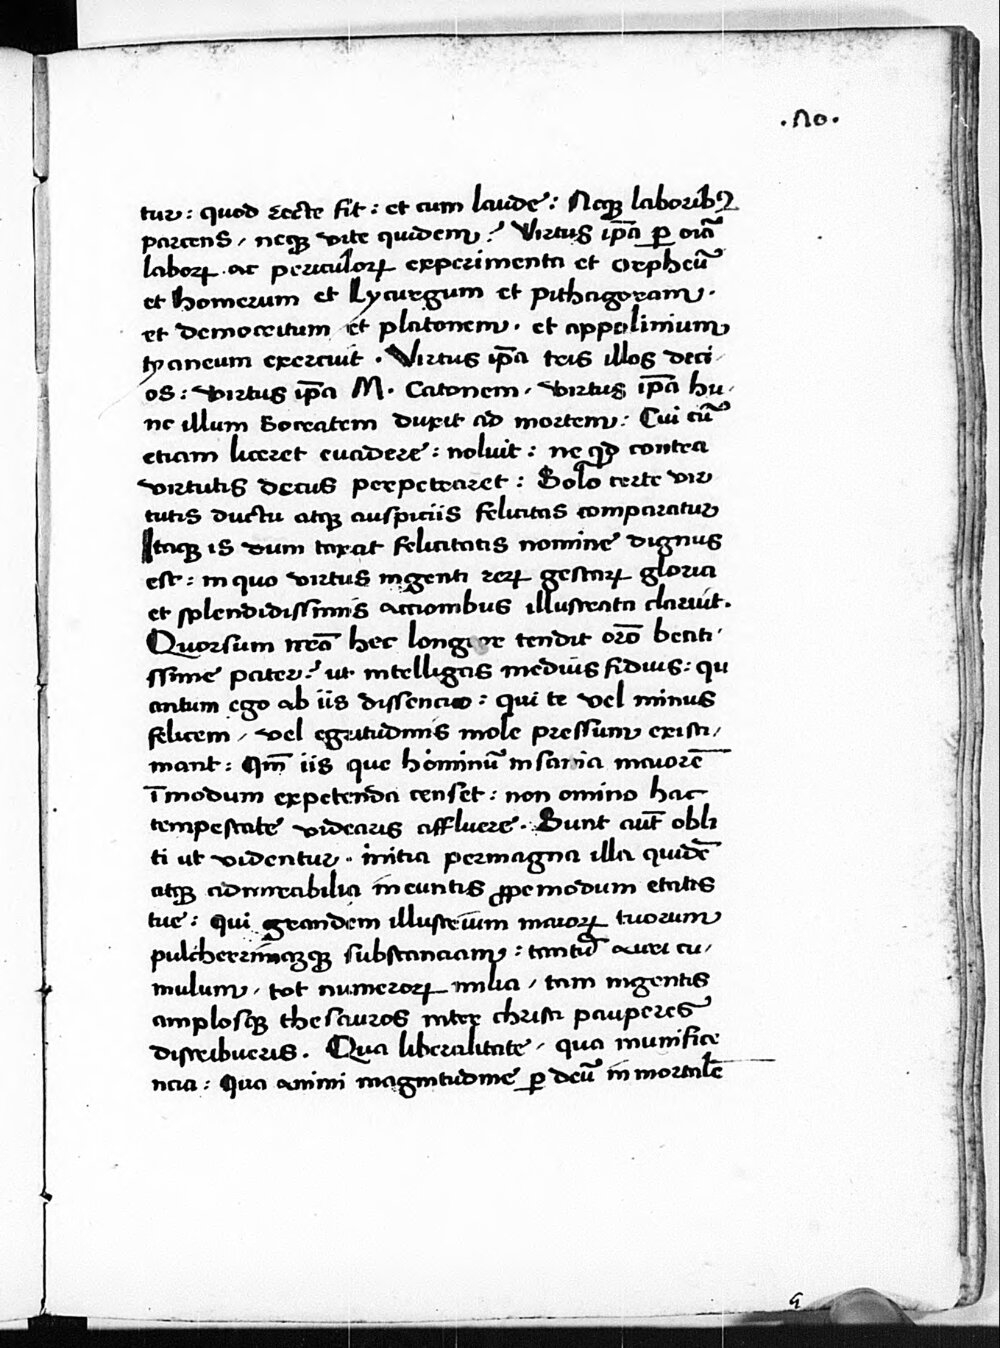 .70.
tur: quod recte fit: et cum laude: Neqꝫ laboribꝰ
parcens, neqꝫ vite quidem? Virtus ip̄a ꝑ oīa
laborꝝ. ac periculorꝝ experimenta et Orpheū
et homerum et Lycurgum et pithagoram.
et democritum et platonem. et appolinium
tyaneum exercuit. Virtus ip̄a tris illos deci,
os: virtus ip̄a M. Catonem, virtus ip̄a hu,
nc illum Socratem duxit ad mortem: Cui cū
etiam liceret euadere: noluit: ne qd contra
virtutis decus perpetraret: Solo certe vir
tutis ductu atqꝫ auspiciis felicitas comparatur
Itaqꝫ is dum taxat felicitatis nomine dignus
est: in quo virtus ingenti rerꝝ gestarꝝ gloria
et splendidissimis actionibus illustrata claruit.
Quorsum hec longior tendit orō beati,
ssime pater? ut intelligas medius fidius: qu
antum ego ab iis dissencio: qui te vel minus
felicem, vel egritudinis mole pressum existi,
mant: Qm̄ iis que hominū insania maiorē
ī modum expetenda censet: non omino hac
tempestate videaris affluere. Sunt aūt obli
ti ut videntur. initia permagna illa quidē
atqꝫ admirabilia ineuntis ꝓpemodum etatis
tue: qui grandem illustrium maiorꝝ tuorum
pulcherrimāqꝫ substanciam: tantū auri cu,
mulum, tot numerorꝝ milia, tam ingentis
amplosqꝫ thesauros inter christi pauperes
distribueris. Qua liberalitate, qua munifice
ncia: Qua animi magnitudine ꝑ deū immortalē